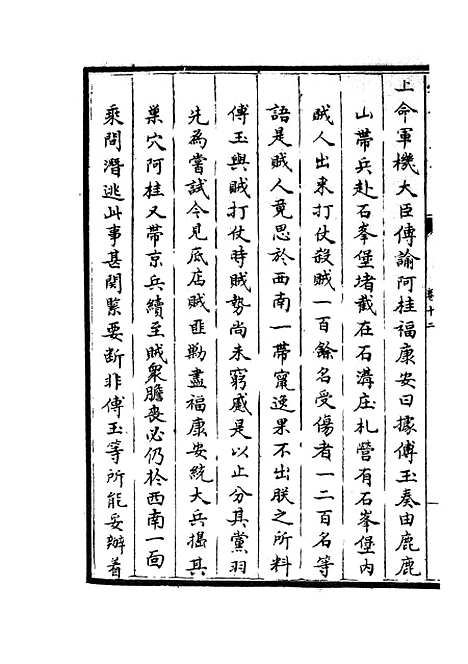 上命軍機大臣傳諭阿桂福康安曰據傅玉奏由鹿鹿
山帶兵赴石峯堡堵截在石溝庄札營有石峯堡内
賊人出來打仗殺賊一百餘名受傷者一二百名等
語是賊人竟思於西南一帶竄逸果不出朕之所料
傅玉與賊打仗時賊勢尚未窮蹙是以止分其黨羽
先為嘗試今見底店賊匪勦盡福康安統大兵搗其
巢穴阿桂又帶京兵續至賊衆膽喪必仍於西南一面
乘間潛逃此事甚関緊要断非傅玉等所能妥辦着
卷十二